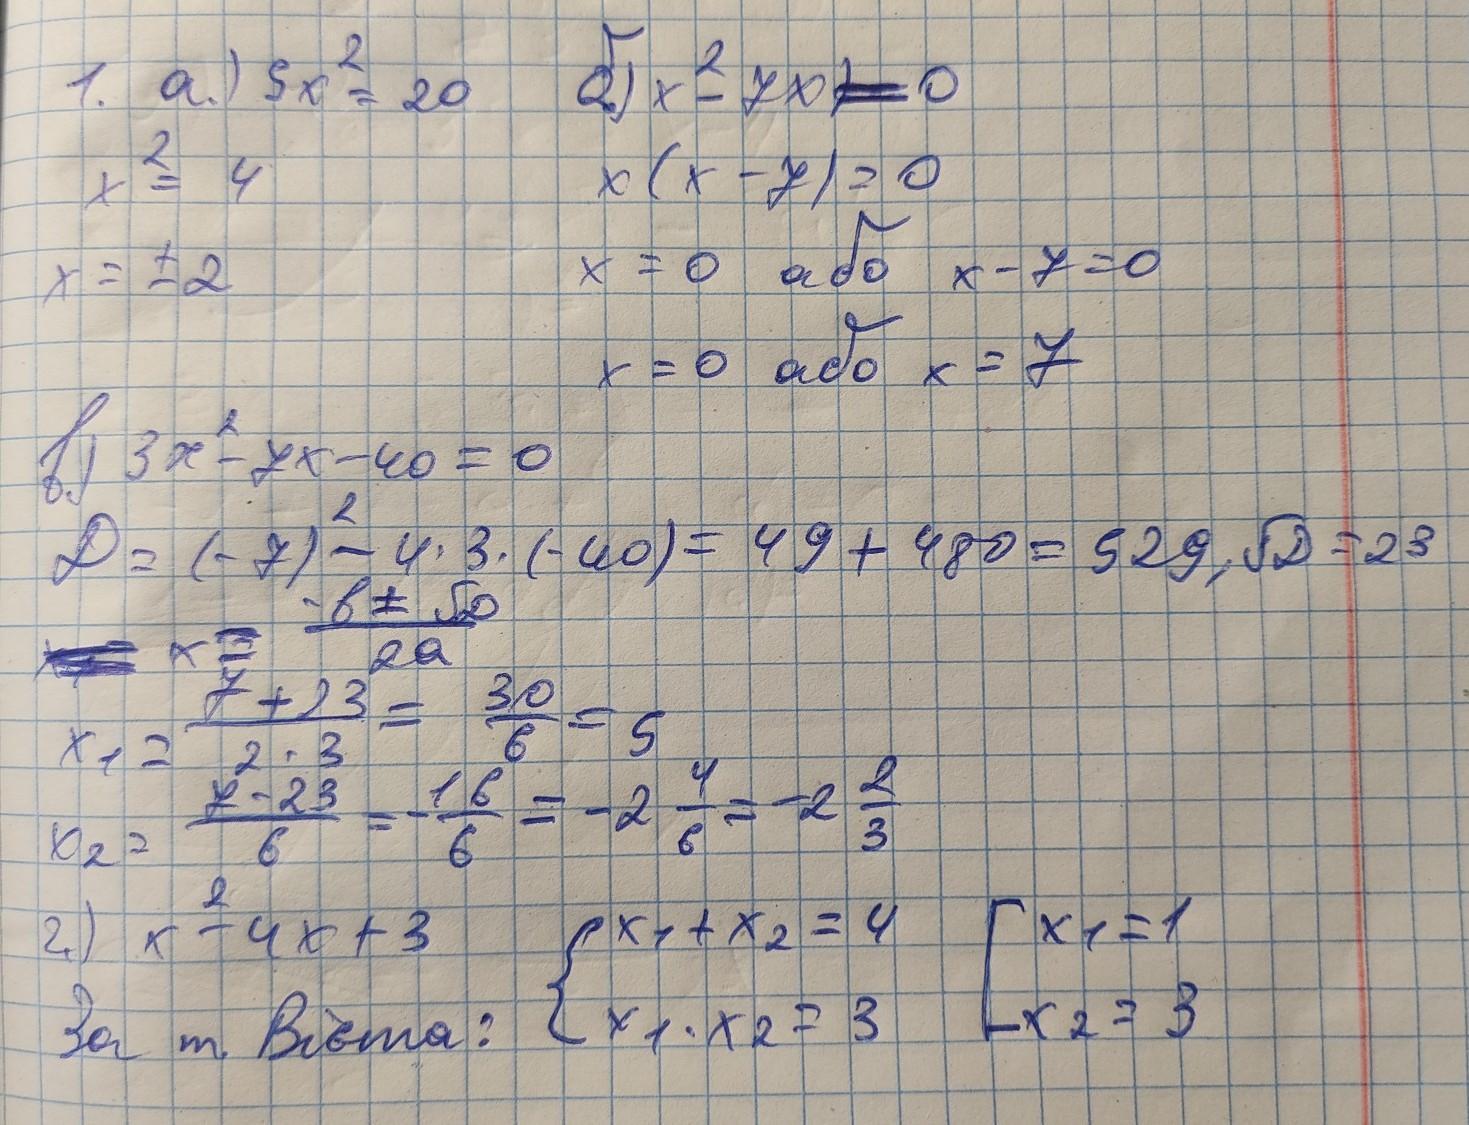 1. а.) 5x² = 20 б) x² - 7x = 0
x² = 4 x(x - 7) = 0
x = ±2 x = 0 або x - 7 = 0
x = 0 або x = 7
в) 3x² - 7x - 40 = 0
D = (-7)² - 4·3·(-40) = 49 + 480 = 529, √D = 23
x = (-b ± √D)/2a
x₁ = (7 + 23)/(2·3) = 30/6 = 5
x₂ = (7 - 23)/6 = -16/6 = -2 4/6 = -2 2/3
2.) x² - 4x + 3 { x₁ + x₂ = 4 [ x₁ = 1
За т. Вієта: x₁ · x₂ = 3 x₂ = 3